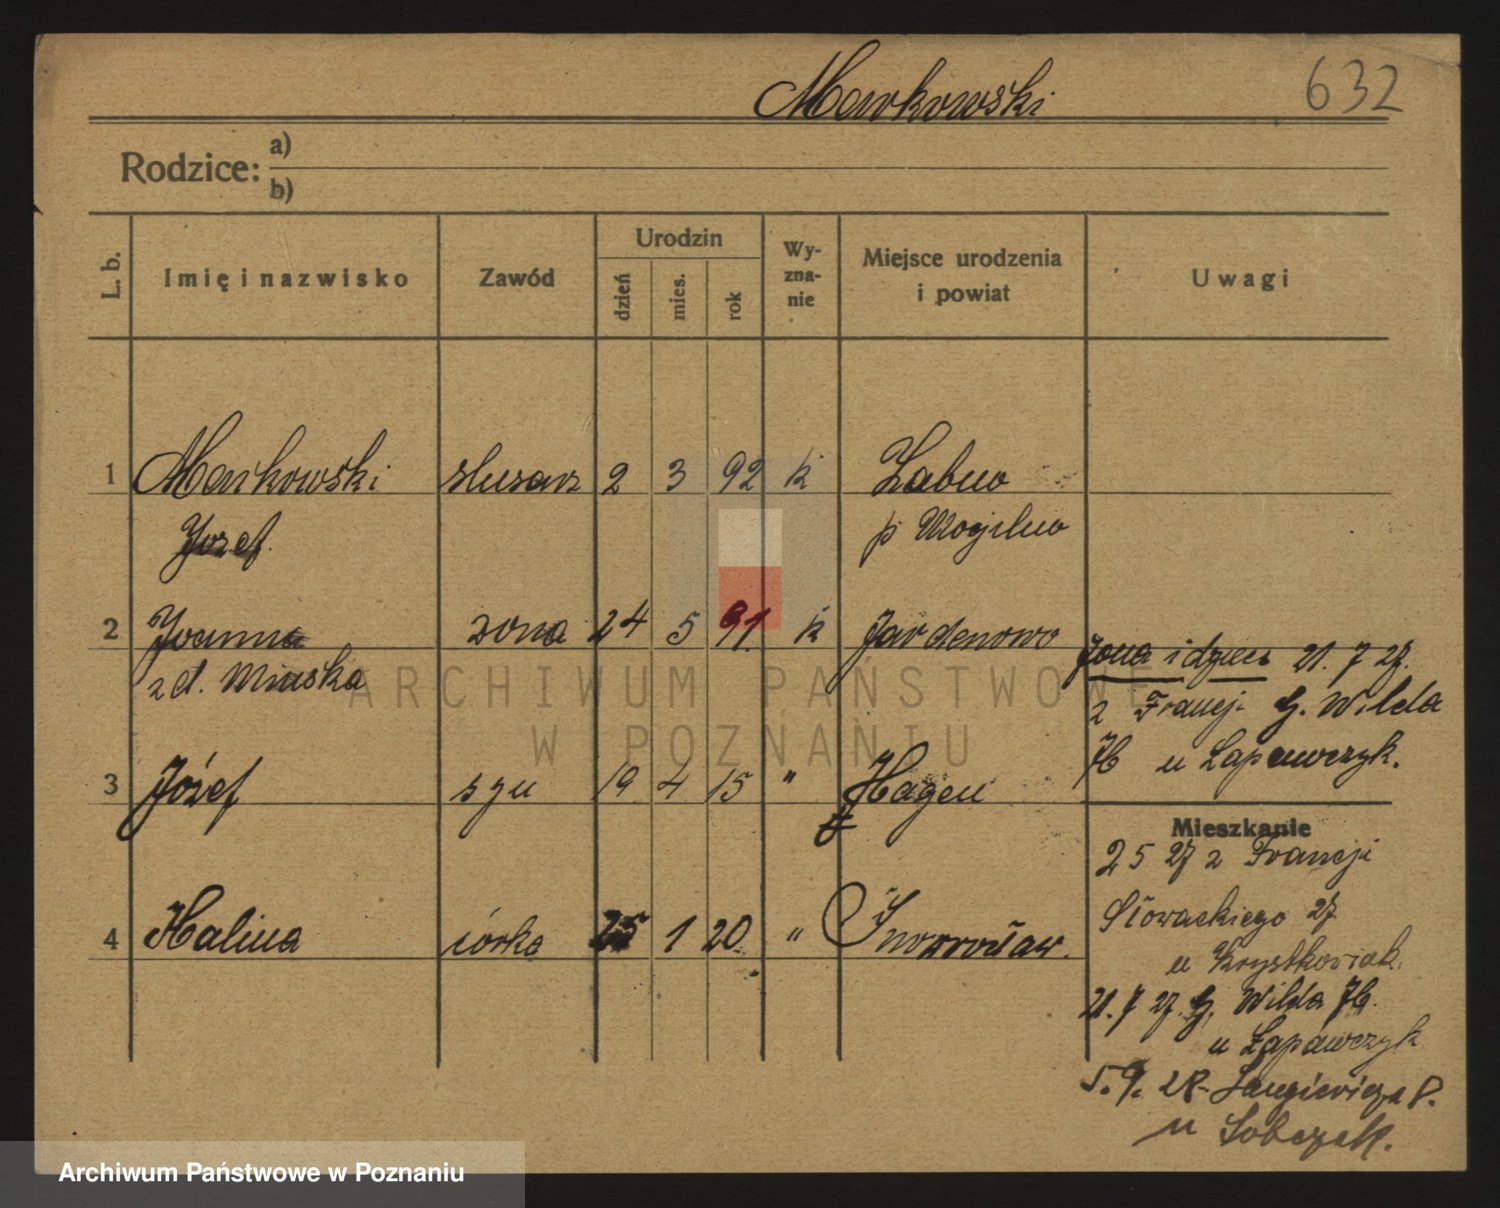 Markowski
632
Rodzice:
a)
b)
L. b.
Imię i nazwisko
Zawód
Urodzin
dzień
mies.
rok
Wy-
zna-
nie
Miejsce urodzenia
i powiat
Uwagi
1 Markowski slusarz 2 3 92 k Żabno
Jozef. p Mogilno
2 Joanna zona 24 5 91. k Jardenowo
z d. Minska
żona i dzieci 21. 7 27.
z Francji G. Wilda
u Łapawczyk.
3 Józef syn 19 4 15 " Hagen
Mieszkanie
2 5 27 z Francji
Słowackiego 27
u Krystkowiak.
4 Halina córka 25 1 20 " Inowrocław.
21. 7 27. G. Wilda
u Łapawczyk
5. 9. 28 Langiewicza 8.
u Sobczak.
ARCHIWUM PAŃSTWOWE
W POZNANIU
Archiwum Państwowe w Poznaniu